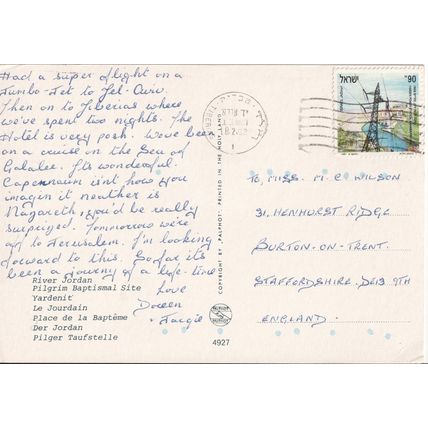 Had a super flight on a
Jumbo-Jet to Tel-Aviv.
Then on to Tiberias where
we've spent two nights. The
Hotel is very posh. We've been
on a cruise on the Sea of
Galalee. It's wonderful.
Capernaum isn't how you
imagin it neither is
Nazareth, you'd be really
surprised. Tomorrow we're
off to Jerusalem. I'm looking
forward to this. So far it's
been a journey of a life-time
Love
Doreen
River Jordan
Pilgrim Baptismal Site
Yardenit
Le Jourdain
Place de la Baptême
Der Jordan
Pilger Taufstelle
COPYRIGHT BY "PALPHOT" PRINTED IN THE HOLY LAND
4927
ישראל
90
TO, MISS. M. C. WILSON
31, HENHURST RIDGE
BURTON-ON-TRENT.
STAFFORDSHIRE. DE13. 9TH
ENGLAND.